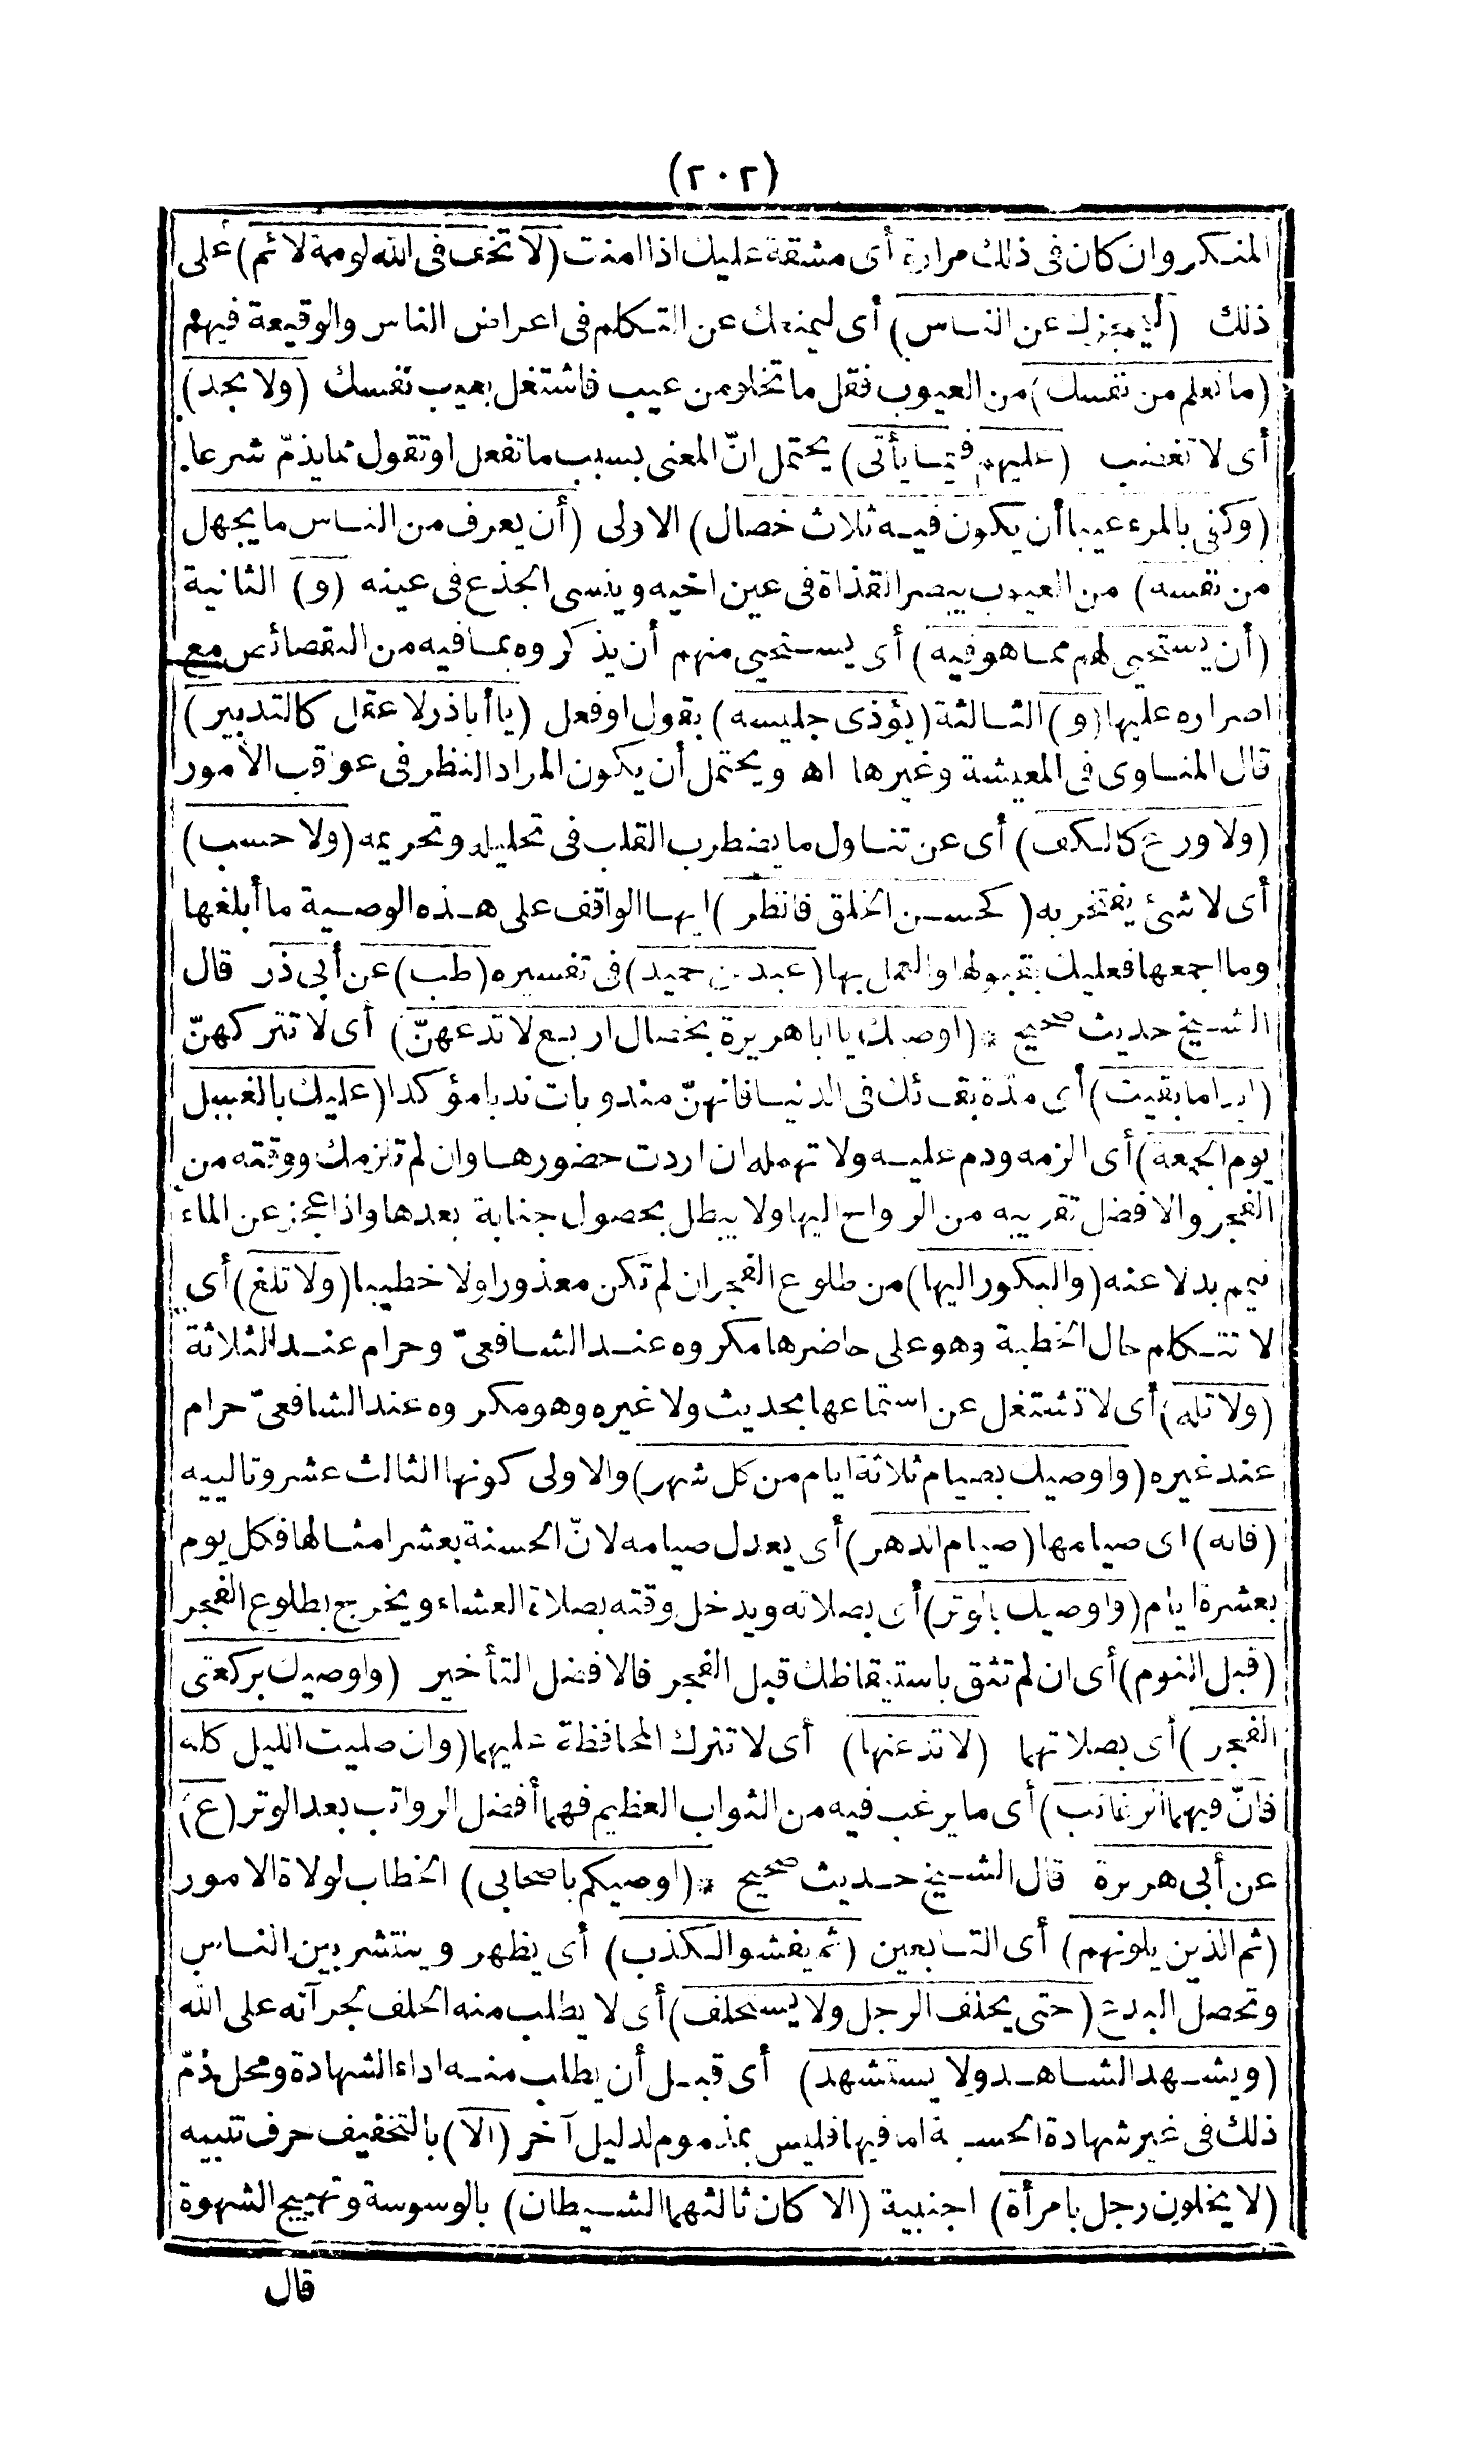 (٢٠٢)
المنكر وان كان فى ذلك مرارة أى مشقة عليك اذا امنت (لا تخف فى الله لومة لائم) على
ذلك (ليحجزك عن الناس) أى ليمنعك عن التكلم فى اعراض الناس والوقيعة فيهم
(ما تعلم من نفسك) من العيوب فقل ما تخلو من عيب فاشتغل بعيب نفسك (ولا تجد)
أى لا تغضب (عليهم فيما يأتى) يحتمل انّ المعنى بسبب ما تفعل او تقول مما يذمّ شرعا
(وكفى بالمرء عيبا أن يكون فيه ثلاث خصال) الاولى (أن يعرف من الناس ما يجهل
من نفسه) من العيوب يبصر القذاة فى عين اخيه وينسى الجذع فى عينه (و) الثانية
(أن يستحيى لهم مما هو فيه) أى يستحيى منهم أن يذكروه بما فيه من النقصائص مع
اصراره عليها (و) الثالثة (يؤذى جليسه) بقول او فعل (يا أبا ذر لا عقل كالتدبير)
قال المناوى فى المعيشة وغيرها اه ويحتمل أن يكون المراد النظر فى عواقب الأمور
(ولا ورع كالكف) أى عن تناول ما يضطرب القلب فى تحليله وتحريمه (ولا حسب)
أى لا شئ يفتخر به (كحسن الخلق فانظر) ايها الواقف على هذه الوصية ما أبلغها
وما اجمعها فعليك بقبولها والعمل بها (عبد بن حميد) فى تفسيره (طب) عن أبى ذر قال
الشيخ حديث صحيح * (اوصيك يا ابا هريرة بخصال اربع لا تدعهنّ) أى لا تتركهنّ
(ابدا ما بقيت) أى مدّة بقائك فى الدنيا فانهنّ مندوبات ندبا مؤكدا (عليك بالغسل
يوم الجمعة) أى الزمه ودم عليه ولا تهمله ان اردت حضورها وان لم تلزمك ووقته من
الفجر والافضل تقريبه من الرواح اليها ولا يبطل بحصول جنابة بعدها واذا عجز عن الماء
تيمم بدلا عنه (والبكور اليها) من طلوع الفجر ان لم تكن معذورا ولا خطيبا (ولا تلغ) أى
لا تتكلم حال الخطبة وهو على حاضرها مكروه عند الشافعىّ وحرام عند الثلاثة
(ولا تله) أى لا تشتغل عن استماعها بحديث ولا غيره وهو مكروه عند الشافعىّ حرام
عند غيره (واوصيك بصيام ثلاثة ايام من كل شهر) والاولى كونها الثالث عشر وتالييه
(فانه) اى صيامها (صيام الدهر) أى يعدل صيامه لانّ الحسنة بعشر امثالها فكل يوم
بعشرة ايام (واوصيك بالوتر) أى بصلاته ويدخل وقته بصلاة العشاء ويخرج بطلوع الفجر
(قبل النوم) أى ان لم تثق باستيقاظك قبل الفجر فالافضل التأخير (واوصيك بركعتى
الفجر) أى بصلاتهما (لا تدعنها) أى لا تترك المحافظة عليهما (وان صليت الليل كله
فانّ فيهما الرغائب) أى ما يرغب فيه من الثواب العظيم فهما أفضل الرواتب بعد الوتر (ع)
عن أبى هريرة قال الشيخ حديث صحيح * (اوصيكم باصحابى) الخطاب لولاة الامور
(ثم الذين يلونهم) أى التابعين (ثم يفشو الكذب) أى يظهر وينتشر بين الناس
وتحصل البدع (حتى يحلف الرجل ولا يستحلف) أى لا يطلب منه الحلف لجرآته على الله
(ويشهد الشاهد ولا يستشهد) أى قبل أن يطلب منه اداء الشهادة ومحل ذمّ
ذلك فى غير شهادة الحسبة اما فيها فليس بمذموم لدليل آخر (الا) بالتخفيف حرف تنبيه
(لا يخلون رجل بامرأة) اجنبية (الا كان ثالثهما الشيطان) بالوسوسة وتهييج الشهوة
قال